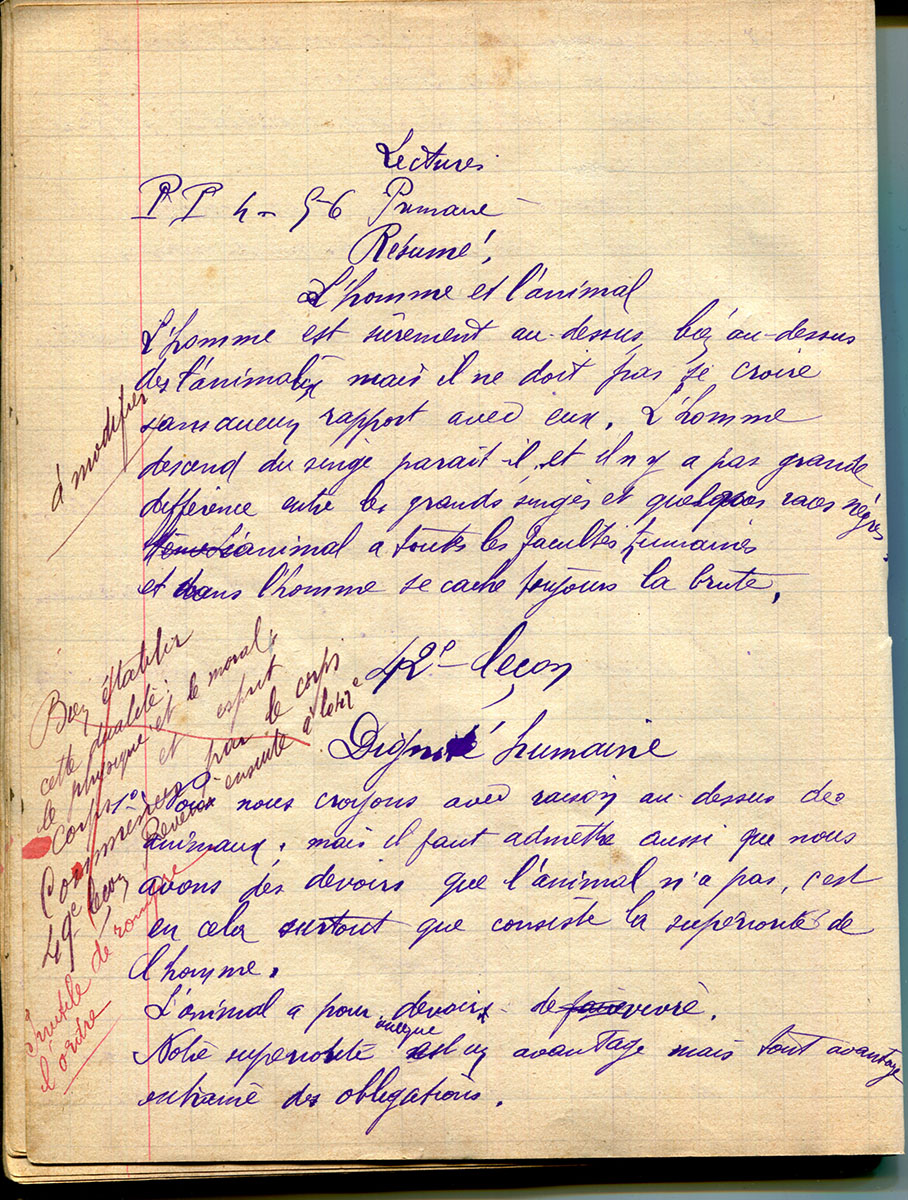 Lectures
P P 4 - 56 Primaire
Résumé.
L'homme et l'animal
L'homme est sûrement au-dessus, bien au-dessus
des animaux mais il ne doit pas se croire
sans aucun rapport avec eux. L'homme
descend du singe parait-il, et il n'y a pas grande
différence entre les grands singes et quelques races nègres.
animal a toutes les facultés humaines
et dans l'homme se cache toujours la brute.
à modifier
42e leçon
Dignité humaine
nous croyons avec raison au-dessus des
animaux, mais il faut admettre aussi que nous
avons des devoirs que l'animal n'a pas, c'est
en cela surtout que consiste la supériorité de
l'homme.
L'animal a pour devoir de faire vivre.
Notre supériorité est un avantage mais tout avantage
entraîne des obligations.
Bien établir
cette dualité :
le physique et le moral,
Corps et esprit
Commencer par le corps
49e leçon Revenir ensuite à
Inutile de rompre
l'ordre